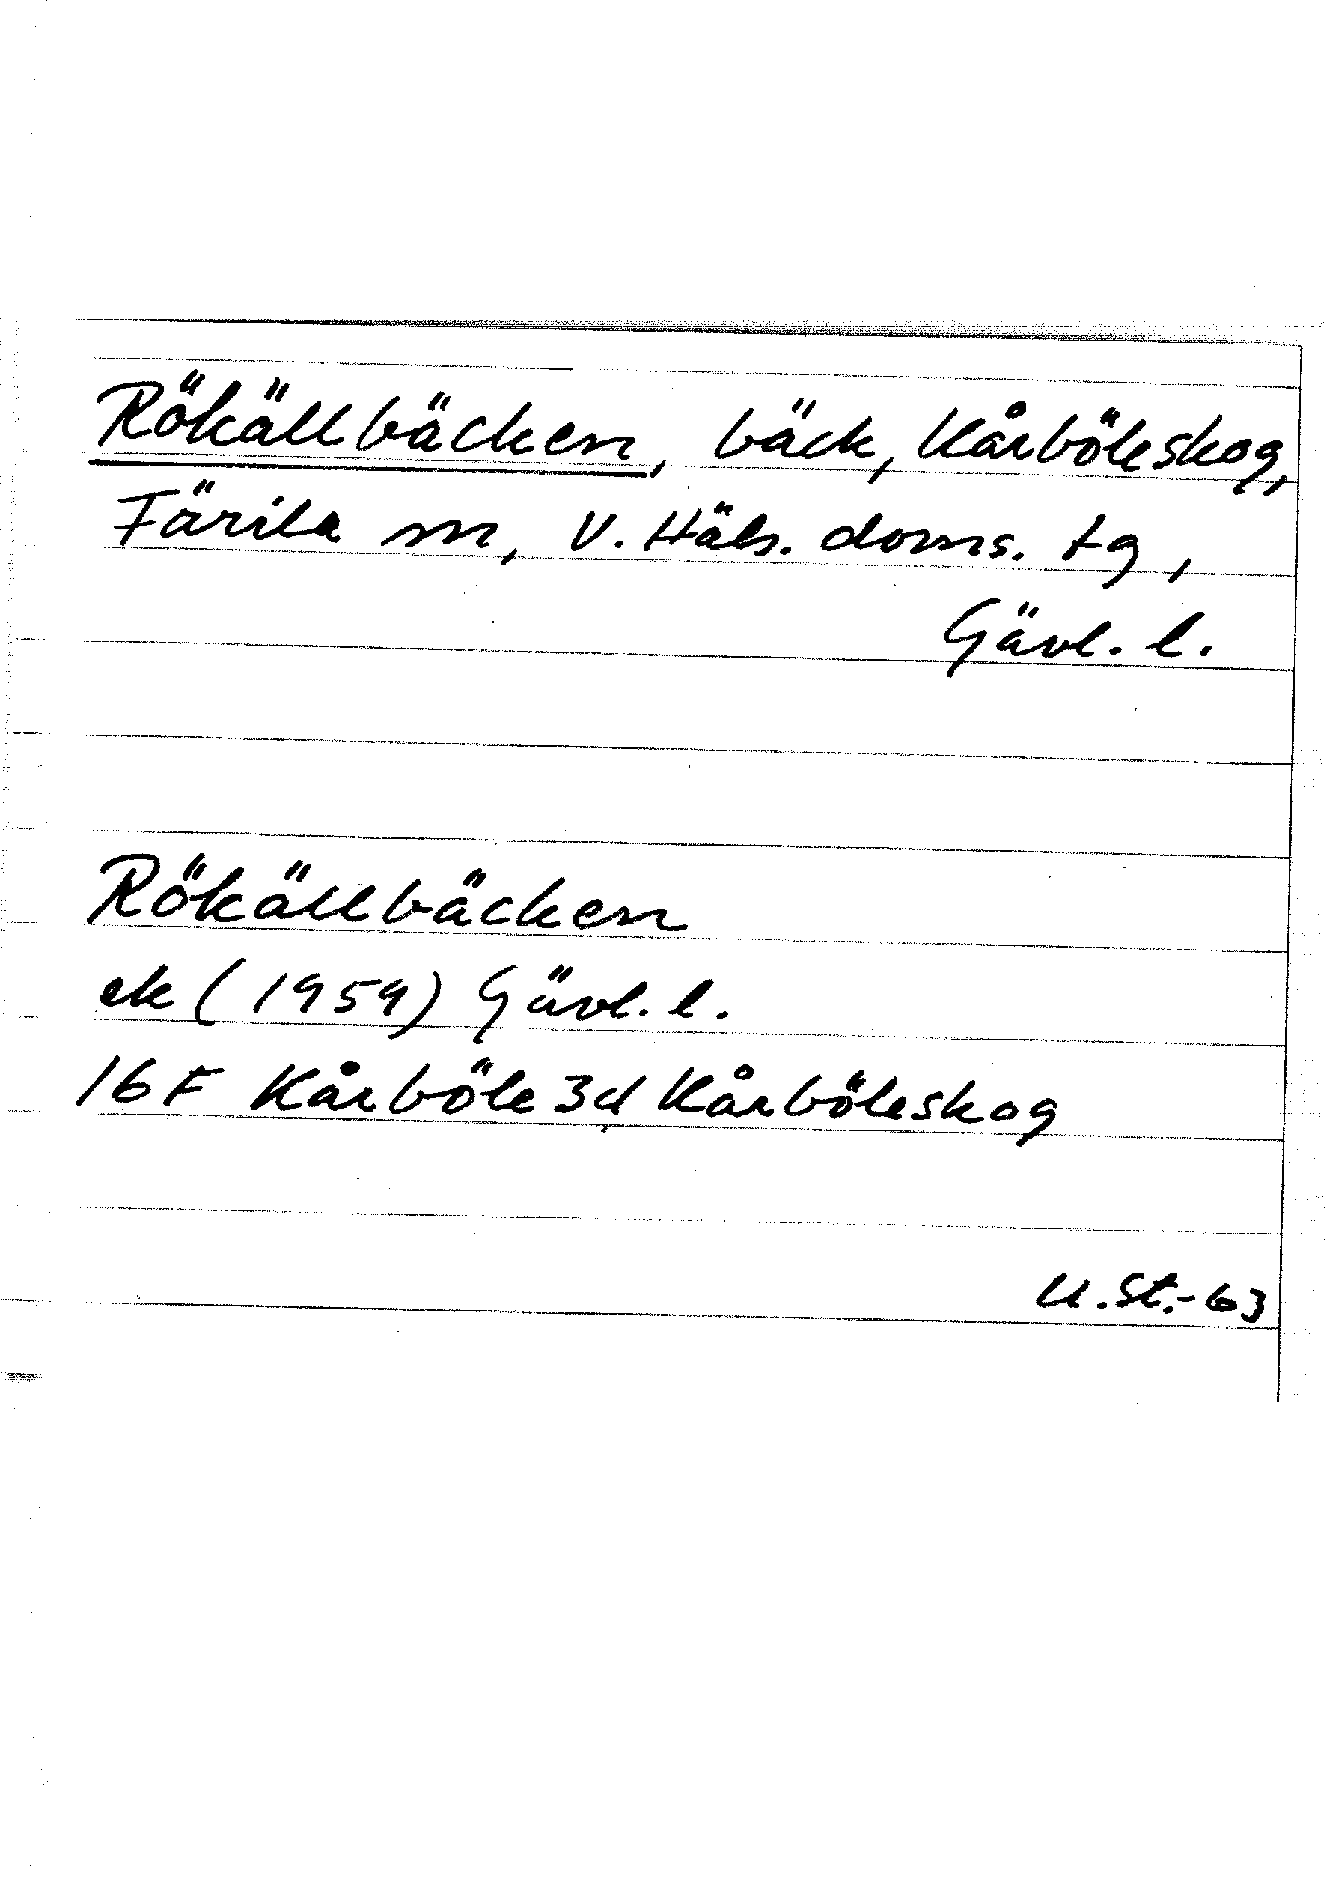 Rökällbäcken, bäck, Kårböleskog,
Färila sn, V. Häls. doms. tg,
Gävl. l.
Rökällbäcken
ek (1959) Gävl. l.
16 F Kårböle 3d Kårböleskog
U.St.-63